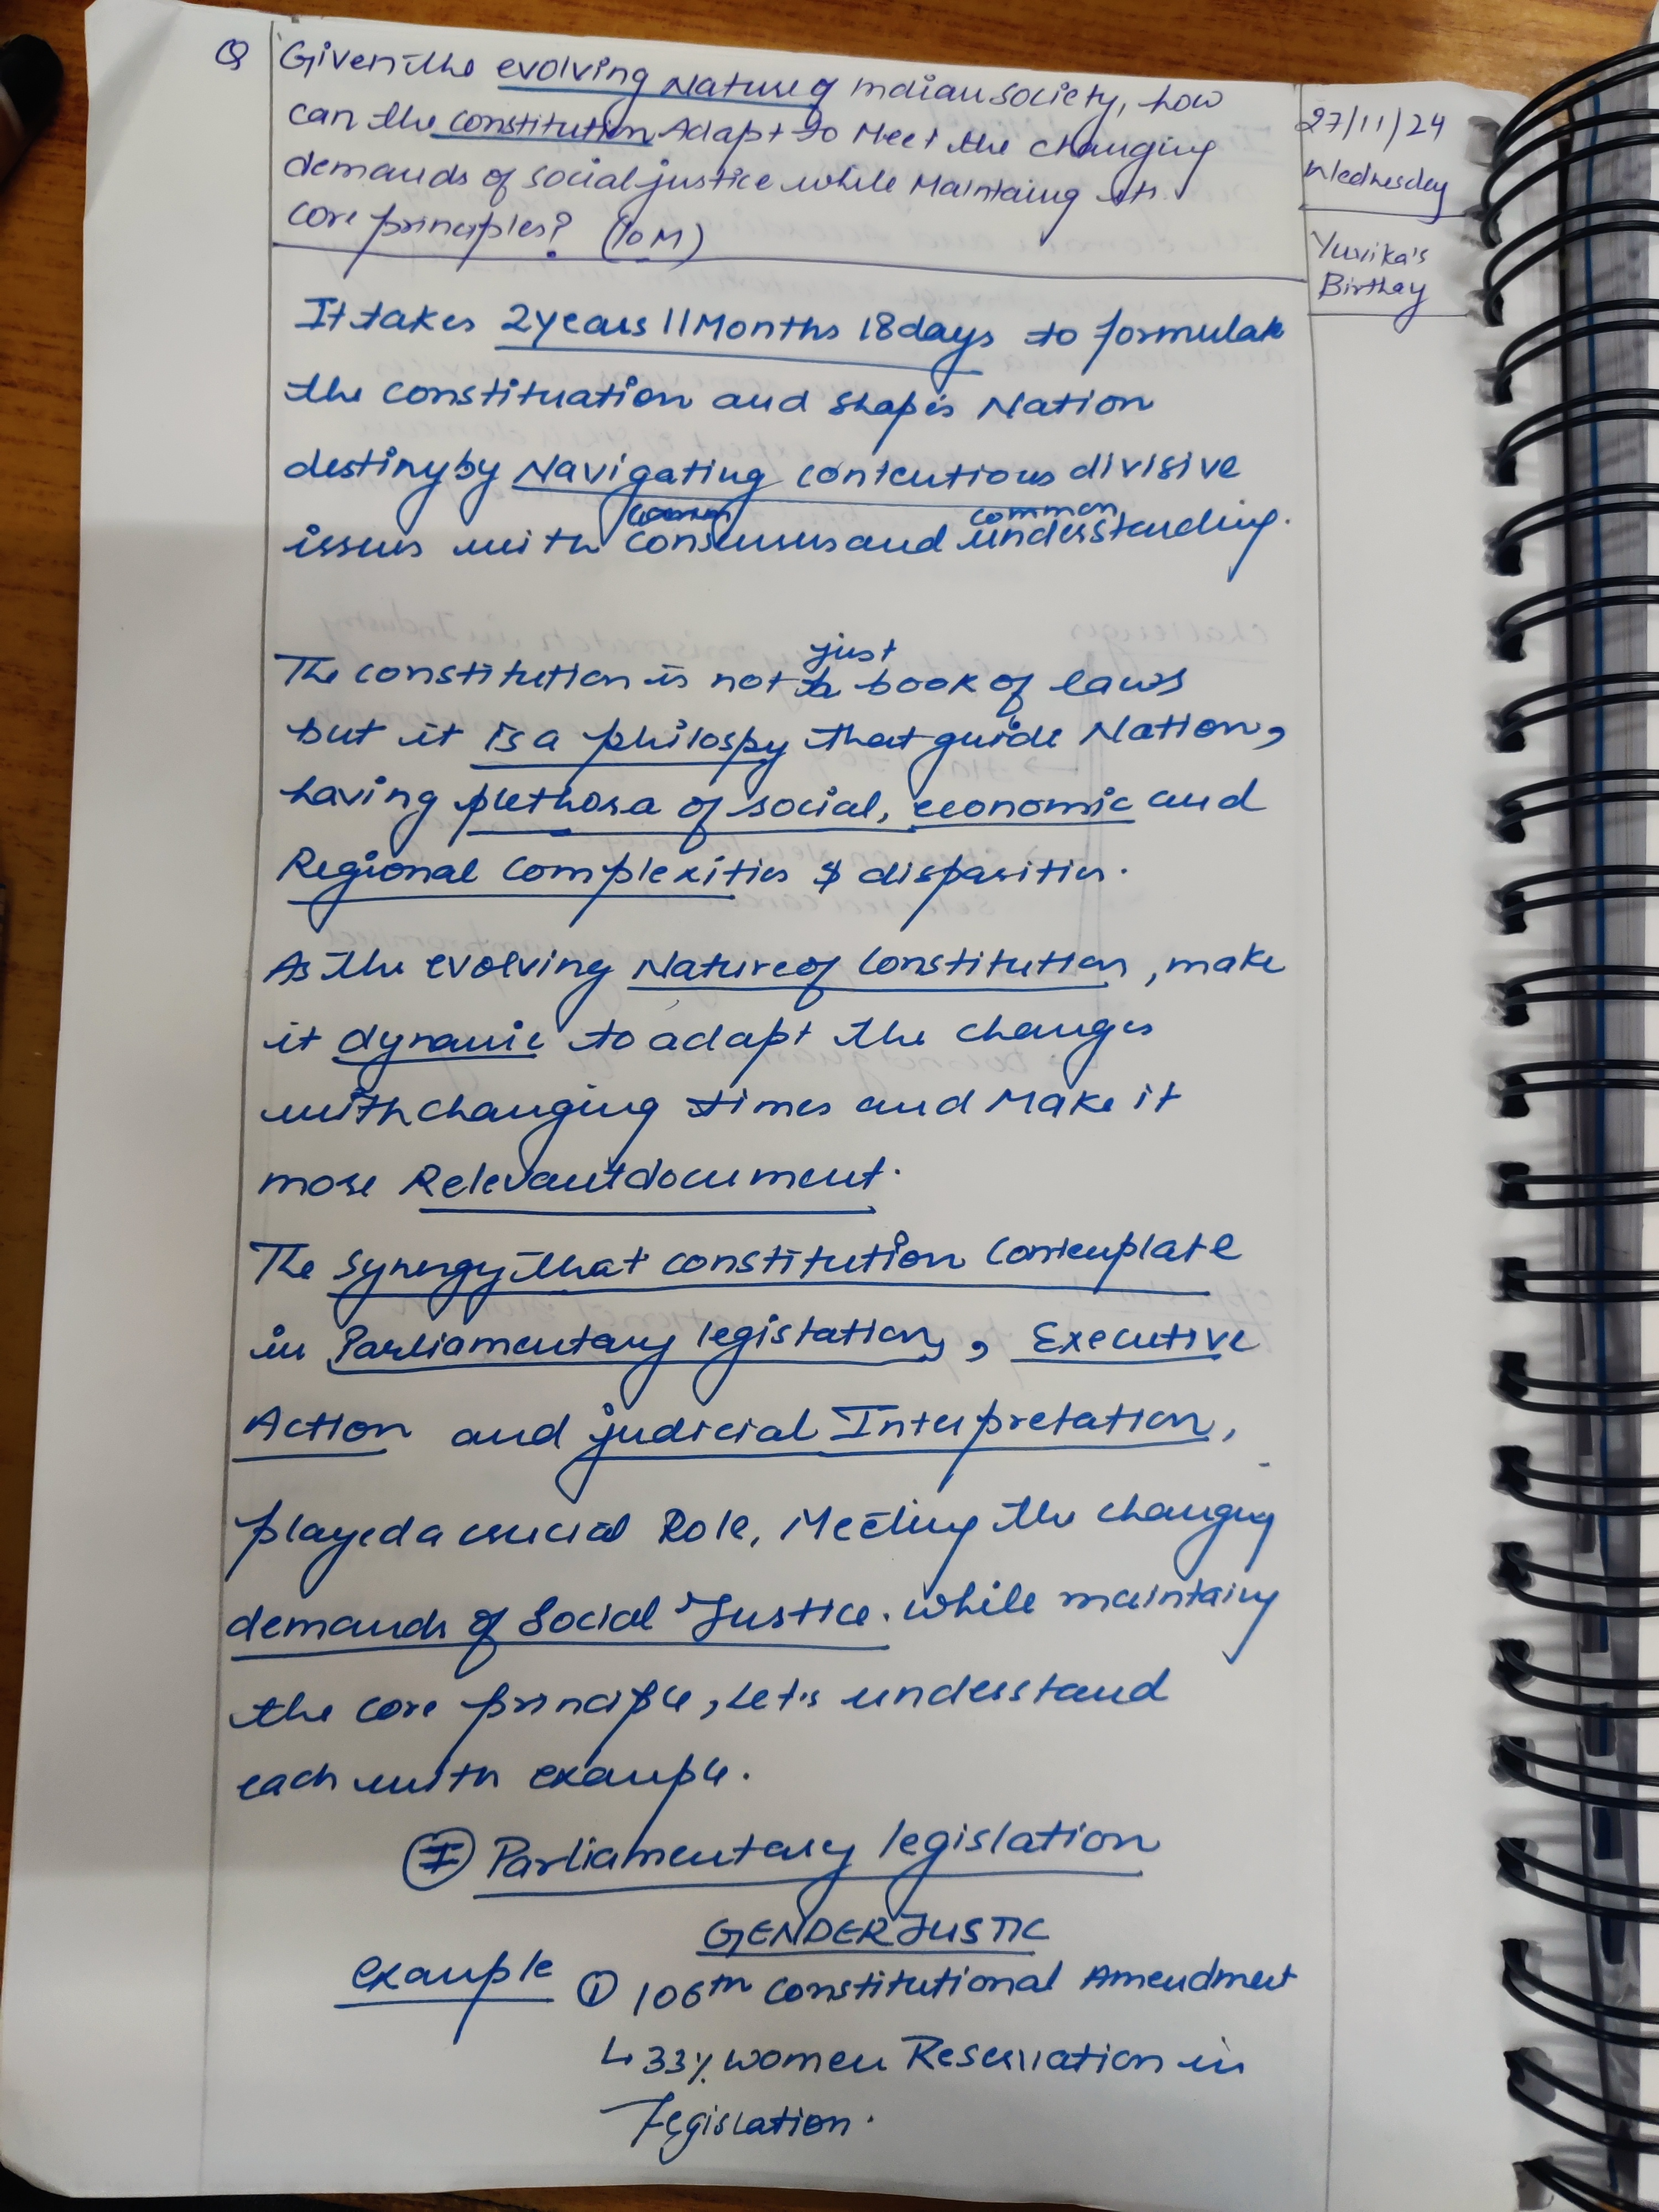 Q Given the evolving Nature of Indian society, how
can the constitution Adapt to Meet the changing
demands of social justice while Maintaing its
core principles? (10M)
27/11/24
Wednesday
Yuvika's
Birthay
It takes 2years 11Months 18days to formulate
the constituation and shapes Nation
destiny by Navigating contentious divisive
issues with consensus and common understanding.
The constitution is not just book of laws
but it is a philospy that guide Nation,
having plethora of social, economic and
Regional Complexities & disparities.
As the evolving Nature of Constitution, make
it dynamic to adapt the changes
with changing times and Make it
more Relevant document.
The synergy that constitution Contemplate
in Parliamentary legistation, Executive
Action and judicial Interpretation,
played a crucial Role, Meeting the changing
demands of Social Justice. while maintaing
the core principle, Let's understand
each with example.
I Parliamentary legislation
GENDER JUSTIC
example ① 106th Constitutional Amendment
↳ 33% women Reservation in
legislation.